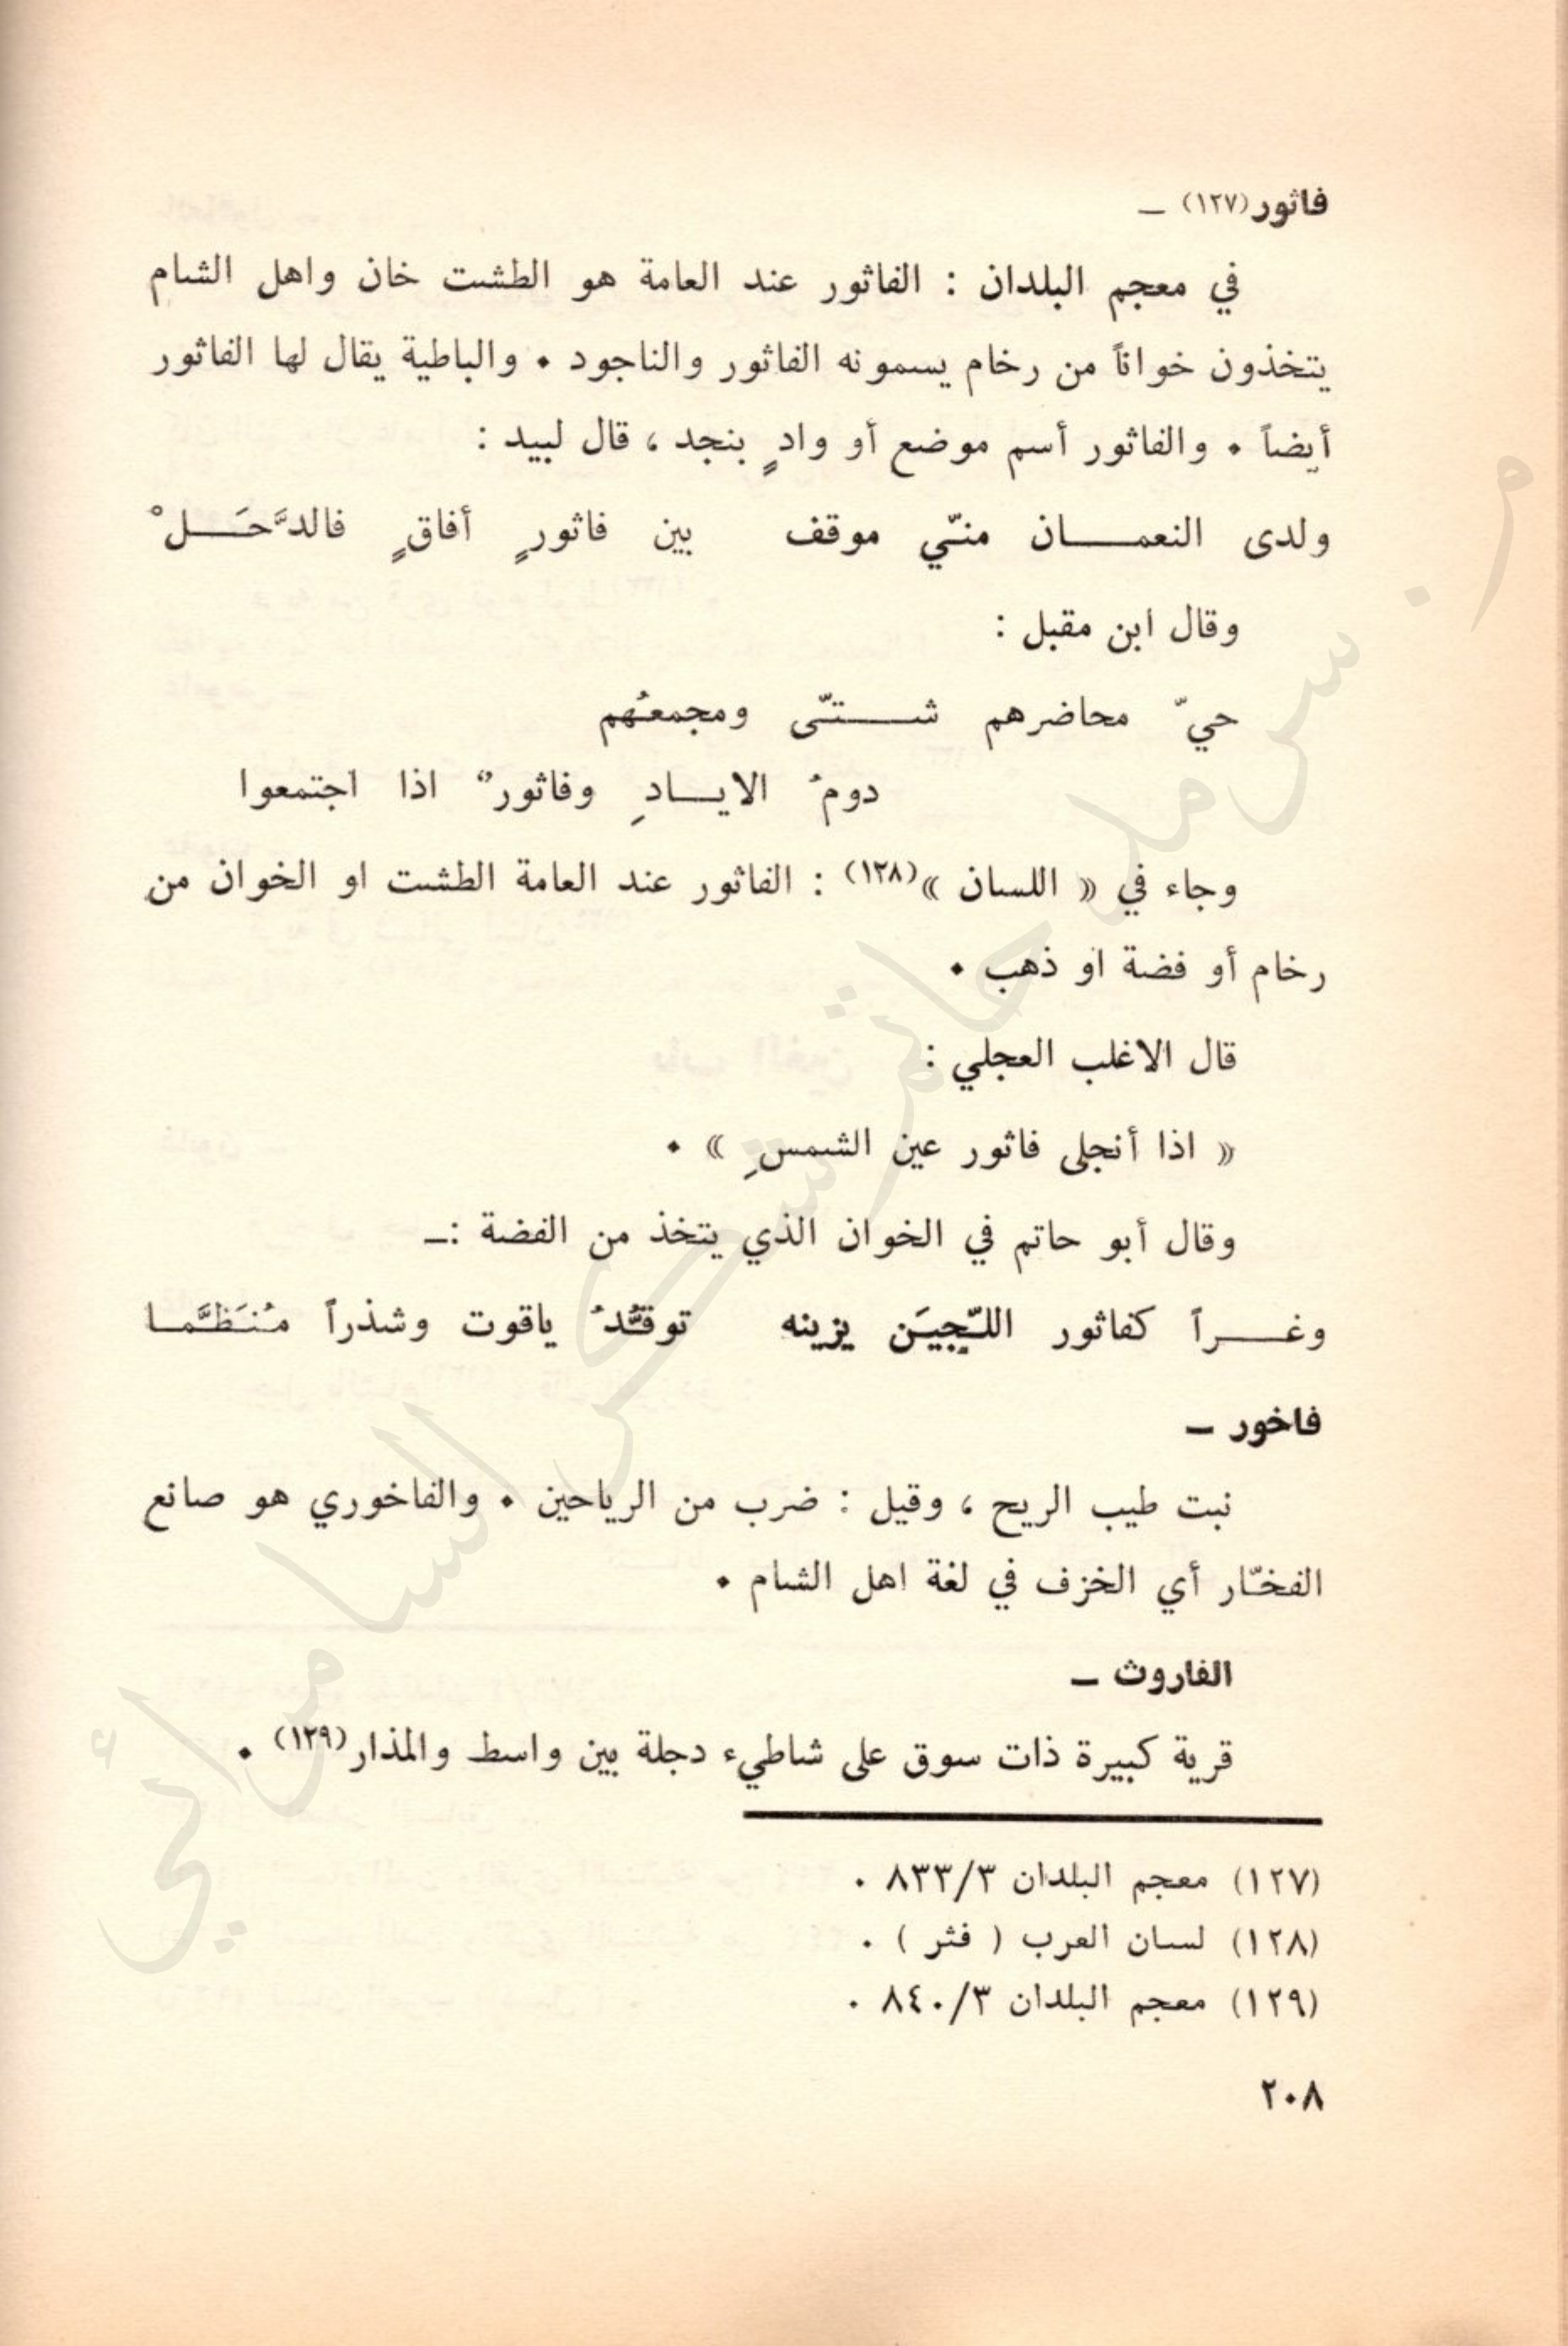 فاثور(١٢٧) ـ
في معجم البلدان : الفاثور عند العامة هو الطشت خان واهل الشام
يتخذون خواناً من رخام يسمونه الفاثور والناجود • والباطية يقال لها الفاثور
أيضاً • والفاثور أسم موضع أو وادٍ بنجد ، قال لبيد :
ولدى النعمـــان منّي موقف بين فاثورٍ أفاقٍ فالدَّحَـــلْ
وقال ابن مقبل :
حيّ محاضرهم شـــتّى ومجمعُهم
دومُ الايـــادِ وفاثورٌ اذا اجتمعوا
وجاء في « اللسان »(١٢٨) : الفاثور عند العامة الطشت او الخوان من
رخام أو فضة او ذهب •
قال الاغلب العجلي :
« اذا أنجلى فاثور عين الشمسِ » •
وقال أبو حاتم في الخوان الذي يتخذ من الفضة :ـ
وغـــراً كفاثور اللّجيَن يزينه توقُّدُ ياقوت وشذراً مُنَظَّمـا
فاخور ـ
نبت طيب الريح ، وقيل : ضرب من الرياحين • والفاخوري هو صانع
الفخّار أي الخزف في لغة اهل الشام •
الفاروث ـ
قرية كبيرة ذات سوق على شاطيء دجلة بين واسط والمذار(١٢٩) •
(١٢٧) معجم البلدان ٨٣٣/٣ .
(١٢٨) لسان العرب ( فثر ) .
(١٢٩) معجم البلدان ٨٤٠/٣ .
٢٠٨